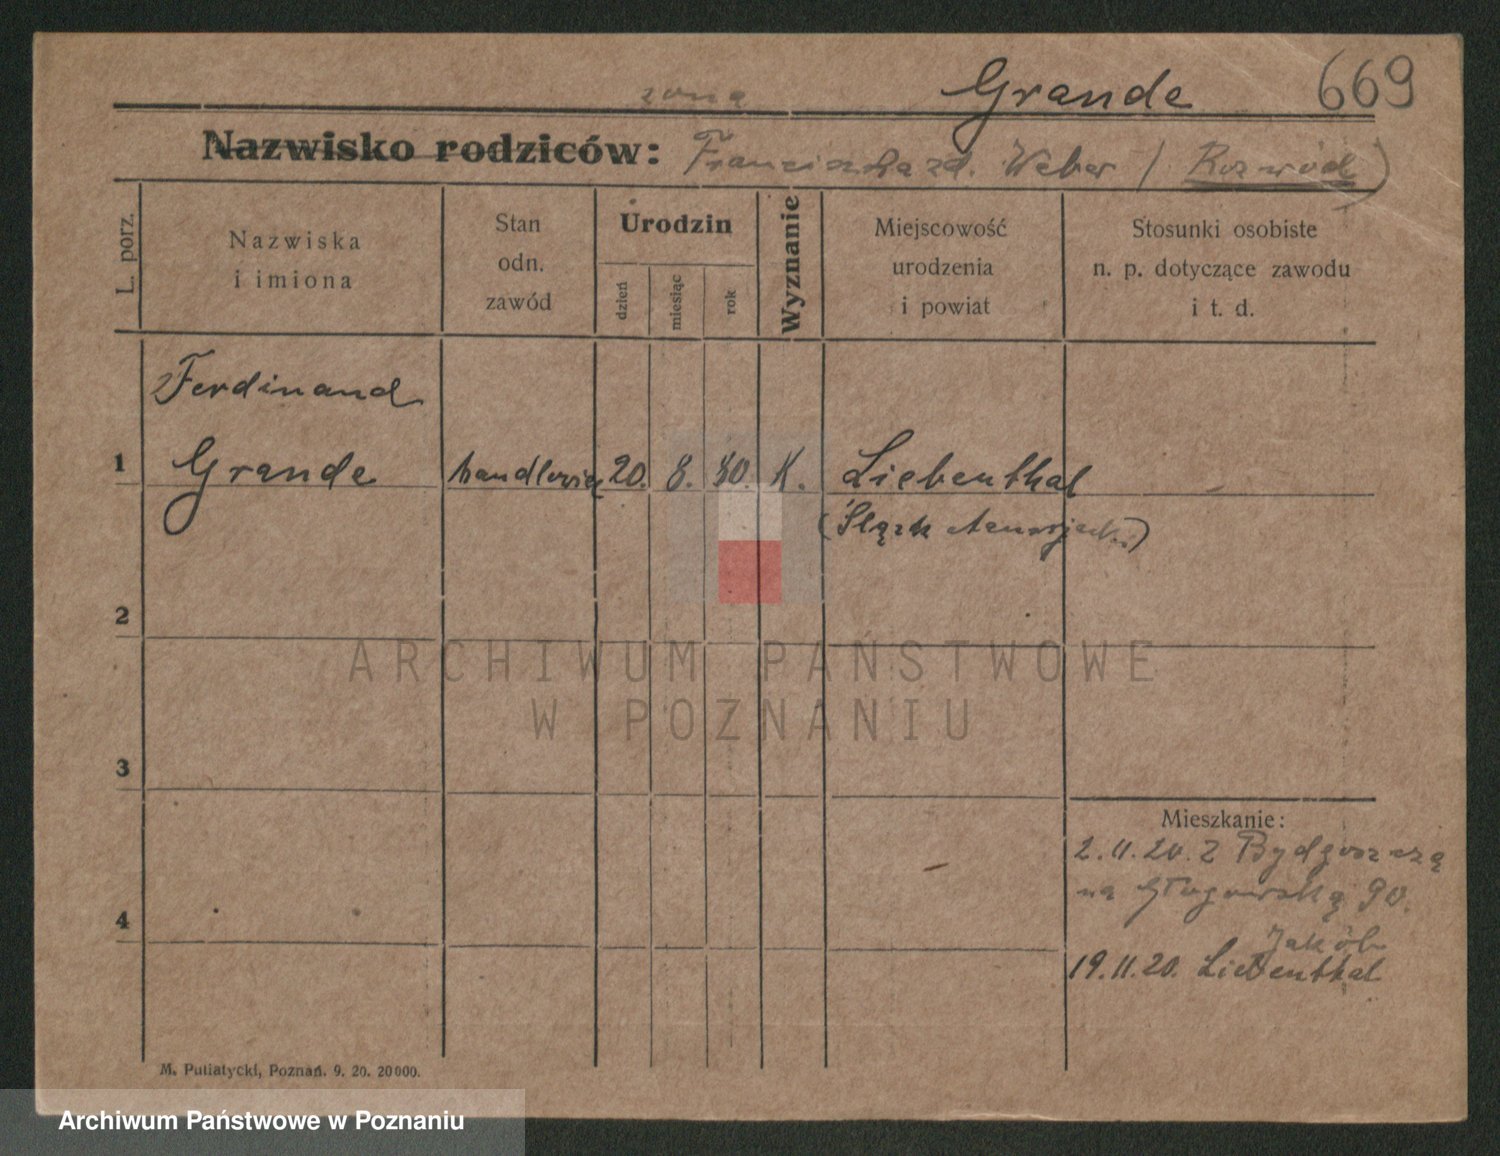 Grande 669
żona
Nazwisko rodziców: Franciszka zd. Weber / Rozwód)
L. porz.
Nazwiska
i imiona
Stan
odn.
zawód
Urodzin
dzień
miesiąc
rok
Wyznanie
Miejscowość
urodzenia
i powiat
Stosunki osobiste
n. p. dotyczące zawodu
i t. d.
Ferdinand
1 Grande handlowiec 20. 8. 80. K. Liebenthal
(Śląsk Austrjacki)
2
ARCHIWUM PAŃSTWOWE
W POZNANIU
3
Mieszkanie:
2.11.20. Z Bydgoszczą
na Głogowską 90.
4
Jakób
19.11.20. Liebenthal
M. Putiatycki, Poznań. 9. 20. 20000.
Archiwum Państwowe w Poznaniu